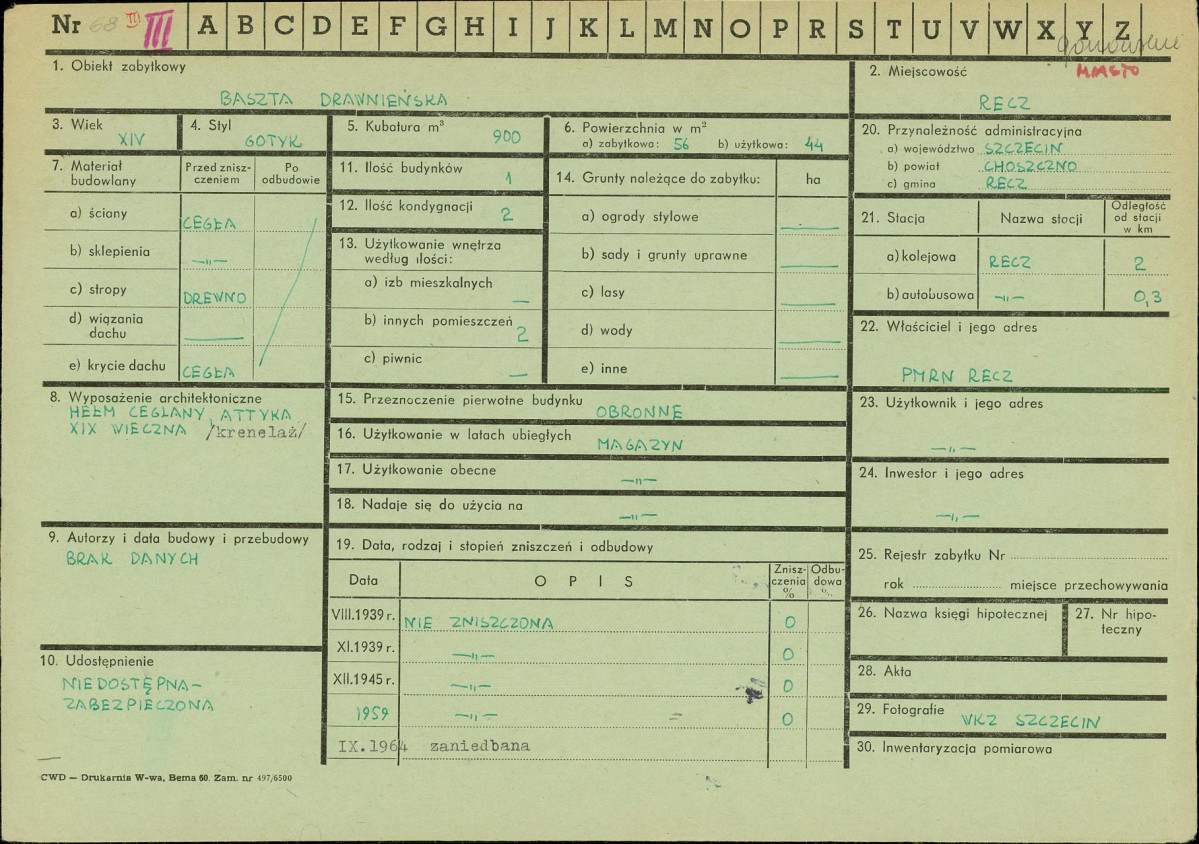 Nr 68 III III A B C D E F G H I J K L M N O P R S T U V W X Y Z
MIASTO
1. Obiekt zabytkowy
BASZTA DRAWNIEŃSKA
2. Miejscowość
RECZ
3. Wiek
XIV
4. Styl
GOTYK
5. Kubatura m³
900
6. Powierzchnia w m²
a) zabytkowa: 56 b) użytkowa: 44
20. Przynależność administracyjna
a) województwo SZCZECIN
b) powiat CHOSZCZNO
c) gmina RECZ
7. Materiał budowlany
Przed znisz-
czeniem
Po
odbudowie
a) ściany CEGŁA
b) sklepienia —„—
c) stropy DREWNO
d) wiązania
dachu —
e) krycie dachu CEGŁA
11. Ilość budynków 1
12. Ilość kondygnacji 2
13. Użytkowanie wnętrza
według ilości:
a) izb mieszkalnych —
b) innych pomieszczeń 2
c) piwnic —
14. Grunty należące do zabytku: ha
a) ogrody stylowe —
b) sady i grunty uprawne —
c) lasy —
d) wody —
e) inne —
21. Stacja Nazwa stocji Odległość
od stacji
w km
a) kolejowa RECZ 2
b) autobusowa —„— 0,3
22. Właściciel i jego adres
PMRN RECZ
8. Wyposażenie architektoniczne
HEŁM CEGLANY, ATTYKA
XIX WIECZNA /krenelaż/
15. Przeznoczenie pierwotne budynku OBRONNE
16. Użytkowanie w latach ubiegłych MAGAZYN
17. Użytkowanie obecne —„—
18. Nadaje się do użycia na —„—
23. Użytkownik i jego adres
—„—
24. Inwestor i jego adres
—„—
9. Autorzy i data budowy i przebudowy
BRAK DANYCH
19. Data, rodzaj i stopień zniszczeń i odbudowy
Data OPIS Znisz-
czenia
%
Odbu-
dowa
%
VIII.1939 r. NIE ZNISZCZONA 0
XI.1939 r. —„— 0
XII.1945 r. —„— 0
1959 —„— 0
IX.1964 zaniedbana
10. Udostępnienie
NIEDOSTĘPNA-
ZABEZPIECZONA
25. Rejestr zabytku Nr
rok miejsce przechowywania
26. Nazwa księgi hipotecznej
27. Nr hipo-
teczny
28. Akta
29. Fotografie WKZ SZCZECIN
30. Inwentaryzacja pomiarowa
CWD — Drukarnia W-wa, Bema 60. Zam. nr 497/6500